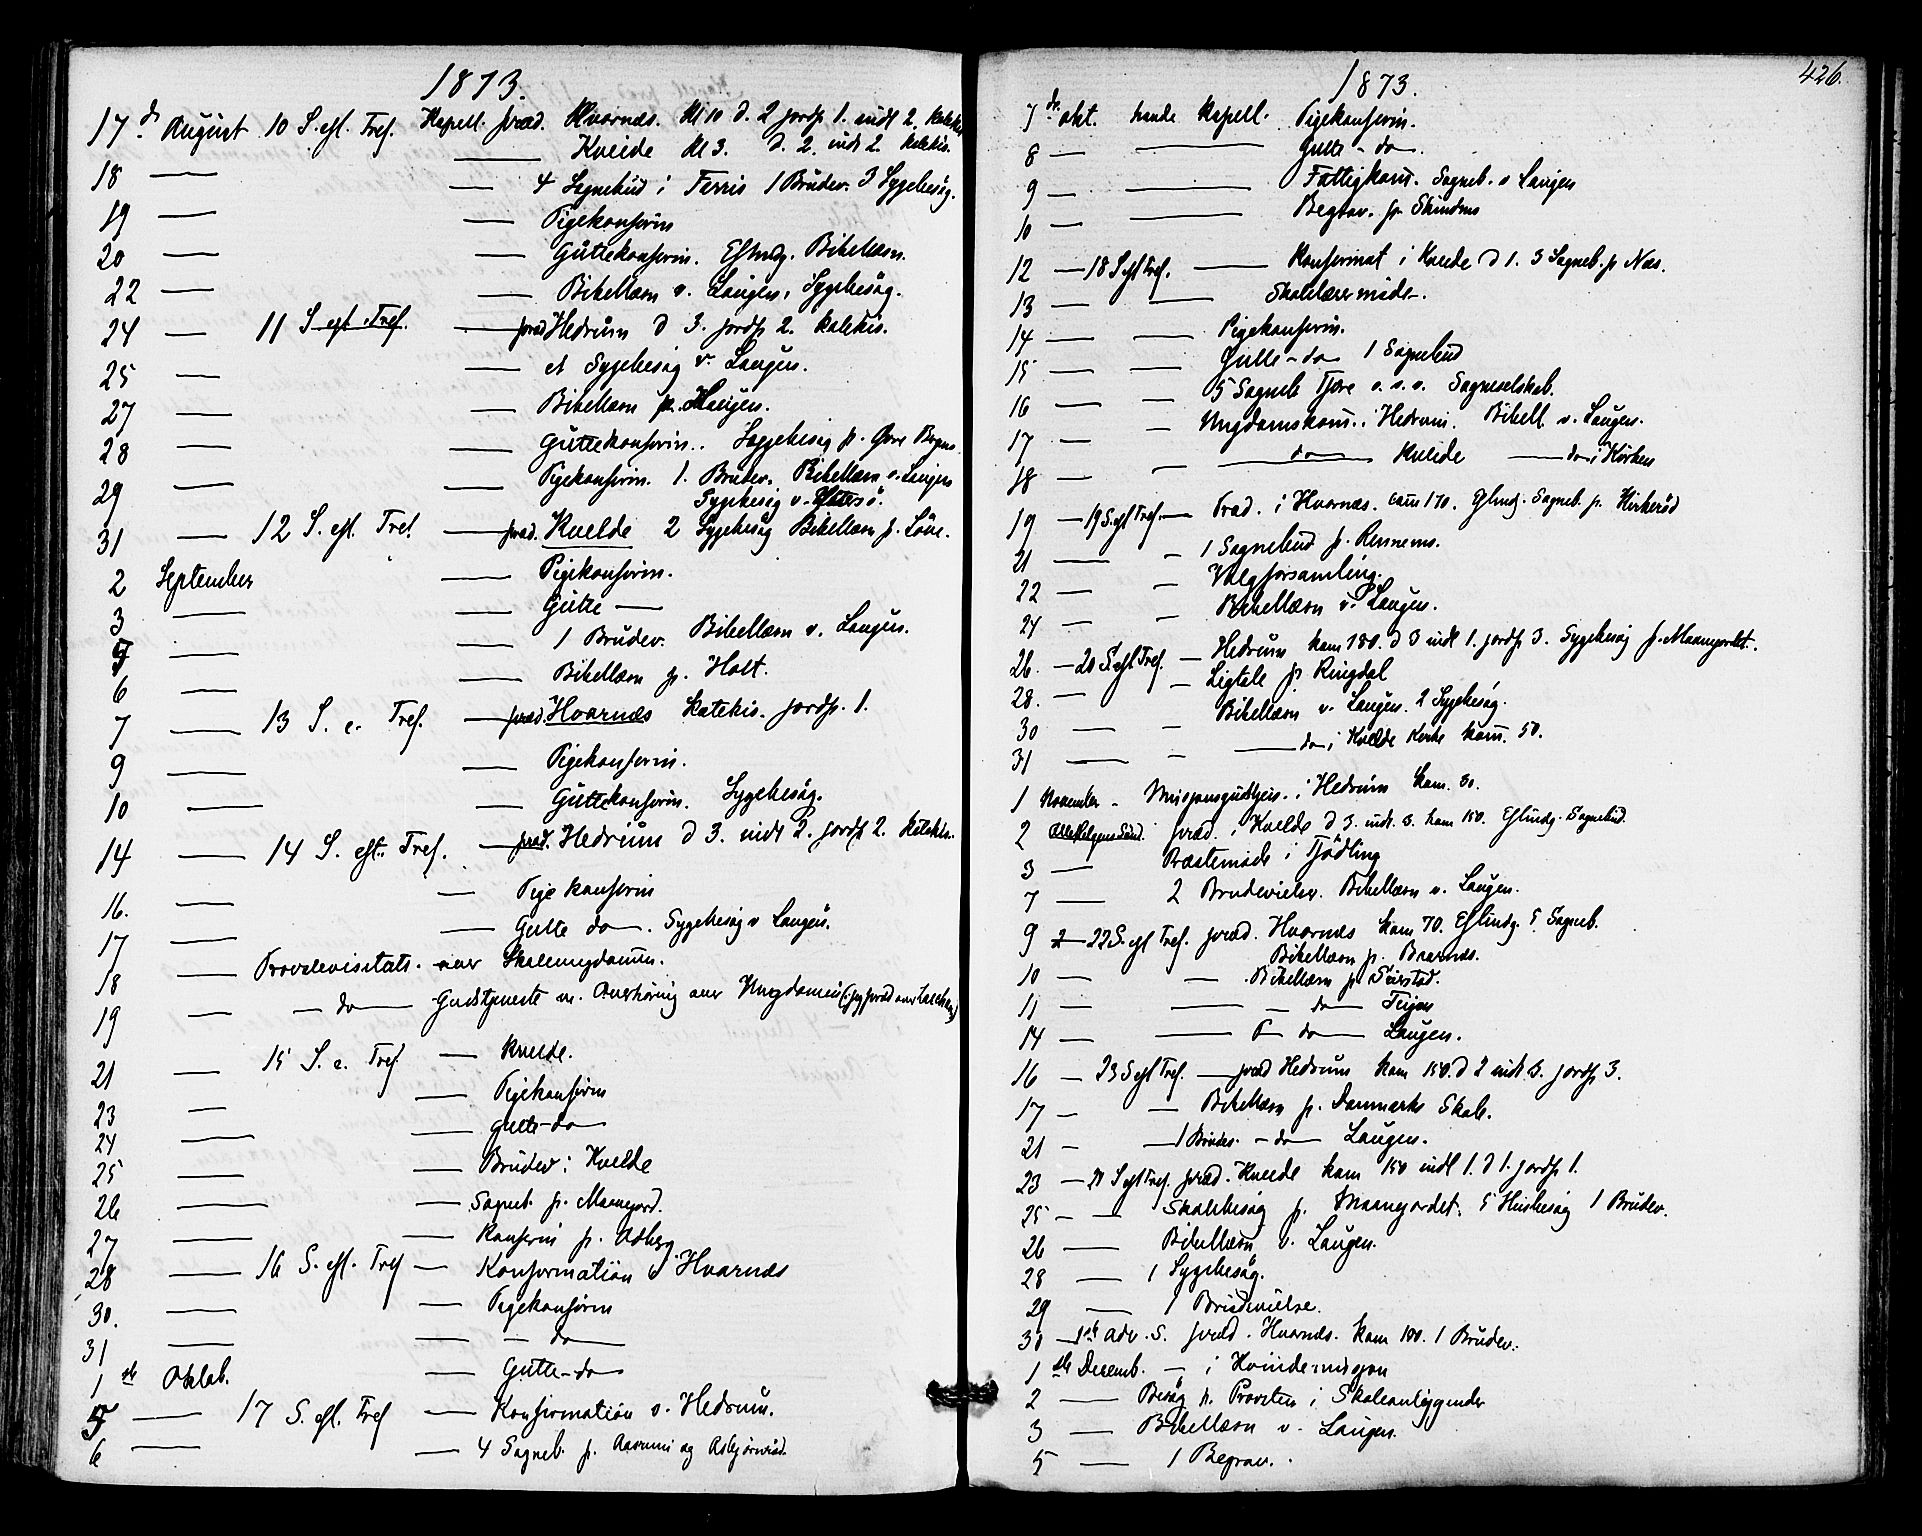 1873.
17 d. August 10 S. eft. Tref. Kapell. præd. Hvarnæs. Kl 10 d. 2 jordf 1. indl 2.
Kvelde Kl 3. d. 2. indl 2. Katekis.
18 — — 4 Sognebud i Farris 1 Brudev. 3 Sygebesøg.
19 — — Pigekonfirm
20 — — Guttekonfirm. Eftmdg. Bibellæsn.
22 — — Bibellæsn v. Laugen, Sygebesøg.
24 — 11 S eft. Tref. — præd Hedrum d 3. jordf 2. katekis.
25 — — et Sygebesøg v. Laugen.
27 — — Bibellæsn p. Haugen.
28 — Guttekonfirm. Sygebesøg p.
29 — — Pigekonfirm. 1. Brudev. Bibellæsn v. Laugen
Sygebesøg v.
31 — 12 S. eft. Tref — præd. Kvelde 2 Sygebesøg Bibellæsn p. Löve.
2 September — Pigekonfirm.
3 — — Gutte —
5 — — 1 Brudev. Bibellæsn v. Laugen.
6 — — Bibellæsn p. Holt.
7 — 13 S. e. Tref. — præd Hvarnæs Katekis. jordf. 1.
9 — — Pigekonfirm.
10 — — Guttekonfirm. Sygebesøg.
14 — 14 S. eft. Tref. — præd. Hedrum d 3. indl 2. jordf 2. Katekis.
16. — — Pige konfirm
17 — — Gutte do. Sygebesøg v Laugen.
18 — Provstevisitats. over Skoleungdommen.
19 — — do — Gudstjeneste m. Overhøring over Ungdomen
21 — 15 S. e. Tref — Kvelde.
23 — — Pigekonfirm
24 — — Gutte-do
25 — — Brudev i Kvelde
26 — — Sogneb. p. Maanejord.
27 — — Konfirm p. Odberg.
28 — 16 S. eft. Tref — Konfirmation i Hvarnæs
30. — — Pigekonfirm
31 — — — do —
1 ste Oktob. — Gutte-do
5 — 17 S. eft. Tref — Konfirmation v. Hedrum.
6 — — 4 Sogneb. p. Aasrum og Asbjørnrød
1873. 426.
7 de. okt. hande Kapell. Pigekonfirm.
8 — — Gutte-do.
9 — — Fattigkom. Sogneb. v Laugen
10 — — p.
12 — 18 S eft Tref. — Konfirmat i Kvelde d 1. 3 Sogneb. p Næs.
13 — — Skolelærermøde.
14 — — Pigekonfirm.
15 — — Gutte-do 1 Sognebud
16 — — 5 Sogneb Tjøre o.s.v. Sogneselskab.
17 — — Ungdomskom. i Hedrum. Bibell. v. Laugen.
18 — — do — Kvelde — do i Kirken
19 — 19 S. eft Tref. — Præd. i Hvarnæs. com 170. Eftmdg. Sogneb. p. Kirkerød
21 — — 1 Sognebud p. Rennems.
22 — — Valgforsamling.
24 — — Bibellæsn v. Laugen.
26. — 20 S. eft Tref. — Hedrum kom 180. d 3 indl 1. jordf 3. Sygebesøg p. Maanejordet.
28. — — Ligtale p Ringdal
30 — — Bibellæsn v. Laugen. 2 Sygebesøg.
31 — — — do i Kvelde Kirke kom. 50.
1 November — Missjonsgudstjen. i Hedrum kom. 30.
2 Allehelgens Sønd. præd. i Kvelde d 3. indl. 3. kom 150. Eftmdg. Sognebud.
3 — Præstemøde i Tjødling
7 — 2 Brudevielser. Bibellæsn v. Laugen.
9 — 22 S. eft Tref. præd. Hvarnæs kom 70. Eftmdg. 5 Sogneb.
Bibellæsn p.
10 — — Bibellæsn p Seierstad.
11 — — do — Teigen
14 — — do — Laugen.
16 — 23 S eft Tref. — præd Hedrum kom 150. d 2 indl 3. jordf 3.
17 — — Bibellæsn p. Danmarks Skole.
21 — — 1 Brudev. — do — Laugen.
23 — S eft Tref. præd. Kvelde kom 150 indl 1. d 1. jordf 1.
25 — — Skolebesøg p. Maanejordet. 5 Husbesøg 1 Brudev.
26 — Bibellæsn v. Laugen.
28 — 1 Sygebesøg.
29 — 1 Brudevielse.
30 — 1ste adv. S. præd. Hvarnæs. kom 100. 1 Brudev.
1 ste Decemb. — i Kvindemisjon
2 — Besøg h. Provsten i Skoleanliggender
3 — Bibellæsn v. Laugen.
5 — 1 Begrav.